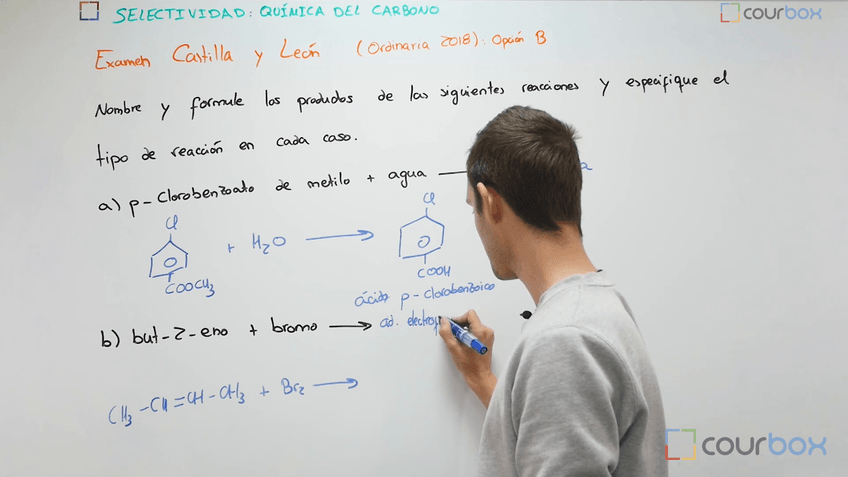 SELECTIVIDAD: QUÍMICA DEL CARBONO
courbox
Examen Castilla y León (Ordinaria 2018): Opción B
Nombre y formule los productos de las siguientes reacciones y especifique el
tipo de reacción en cada caso.
a) p-Clorobenzoato de metilo + agua
Cl
+ H2O
COOCH3
Cl
COOH
ácido p-clorobenzoico
b) but-2-eno + bromo ⟶ ad.
CH3-CH=CH-CH3 + Br2 ⟶
courbox